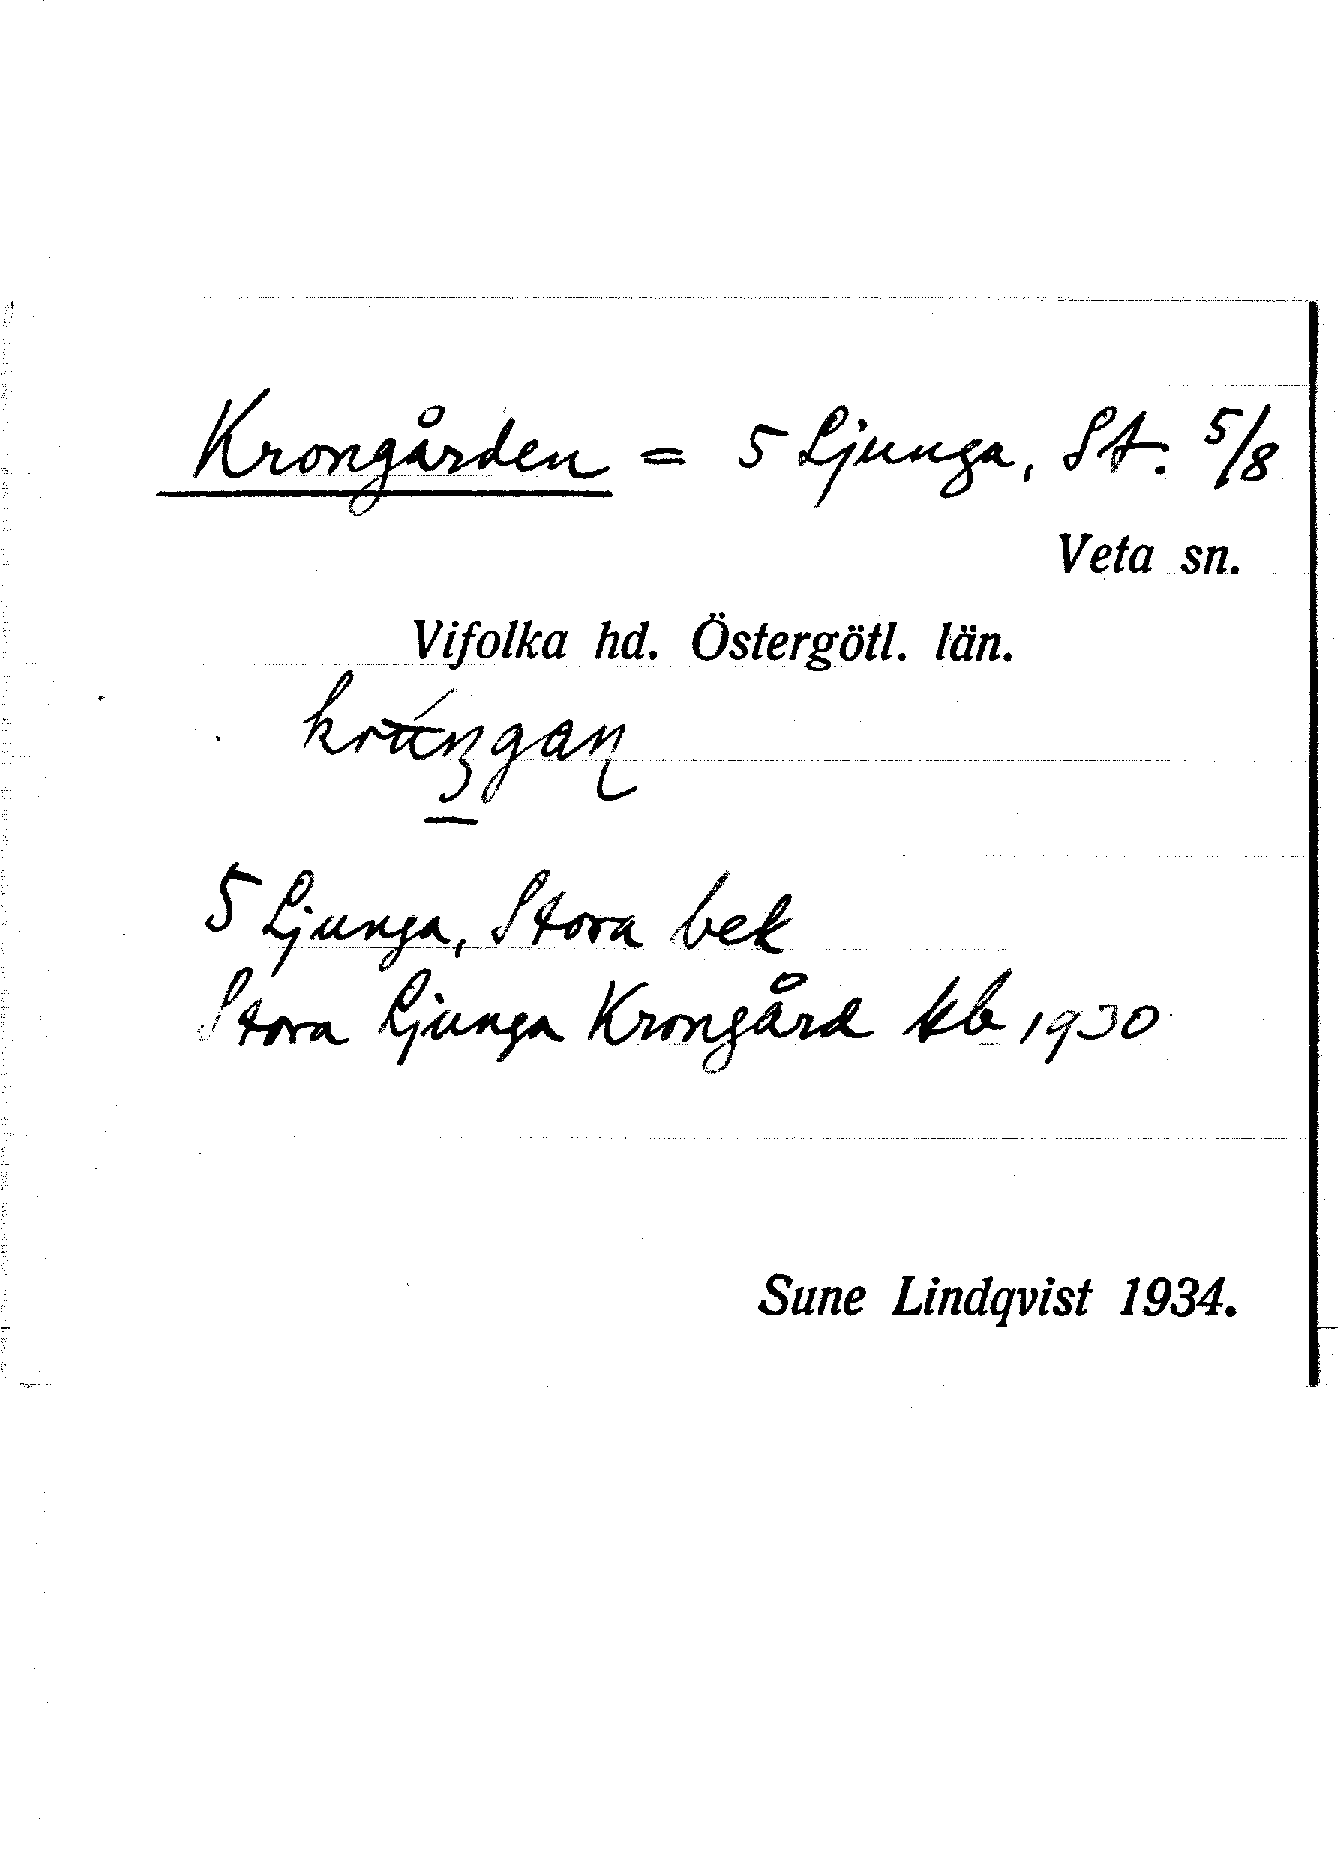 Krongården = 5 Ljunga, St. 5/8
Veta sn.
Vifolka hd. Östergötl. län.
5 Ljunga, Stora bek
Stora Ljunga Krongård kb 1930
Sune Lindqvist 1934.